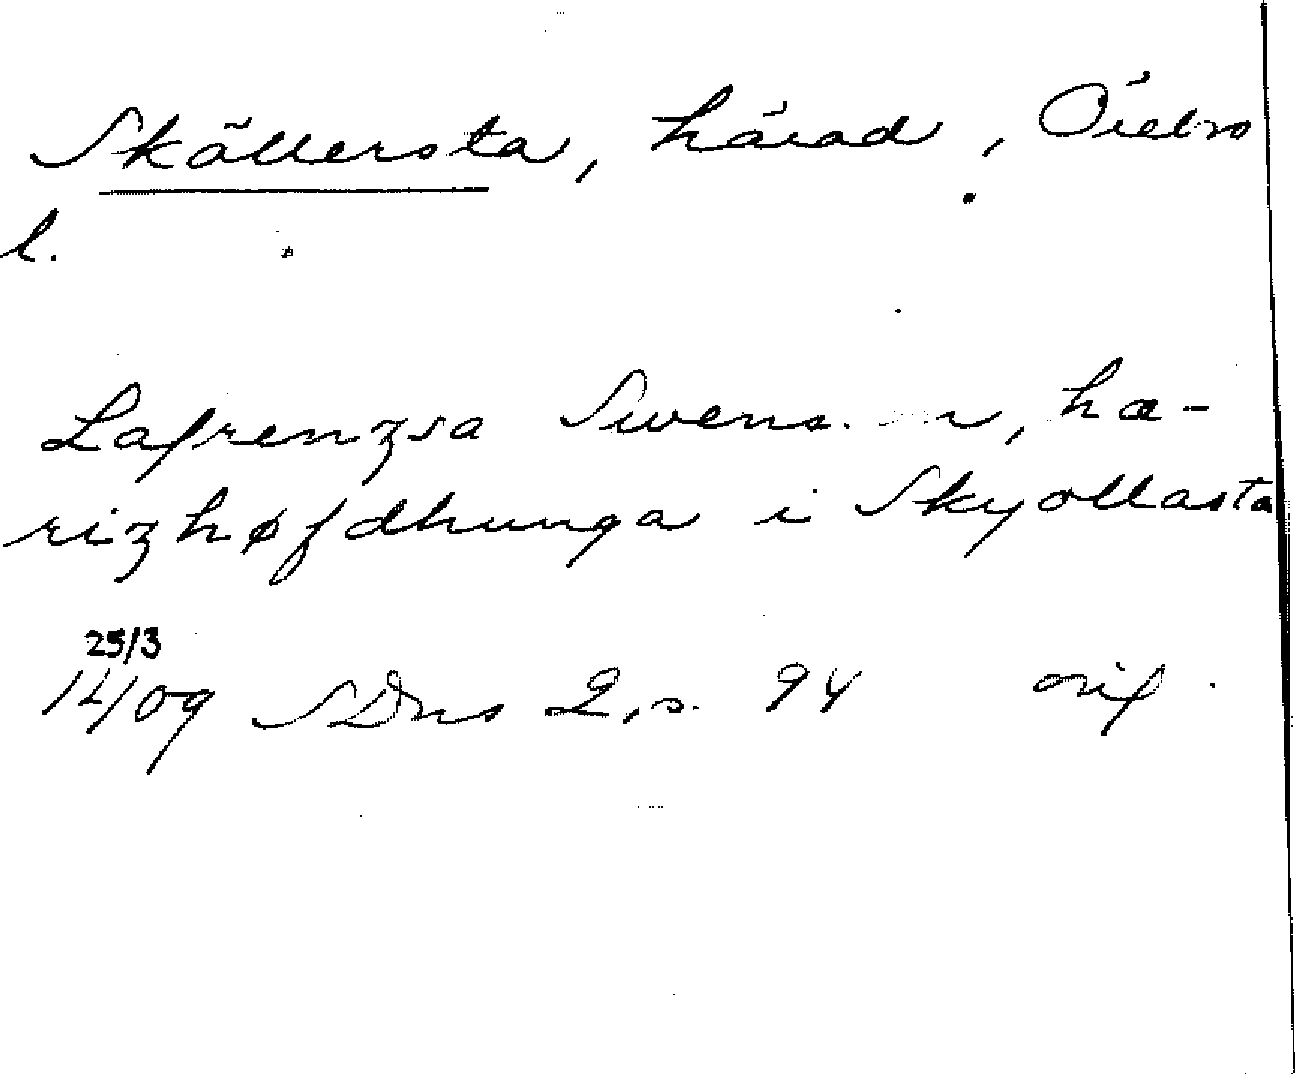 Skällersta, härad, Örebro
l.
Lafrenzsa Swens. n, hæ-
rizhøfdhunga i Skyollasta
25/3
14/09 SDns 2, s. 94 orig.